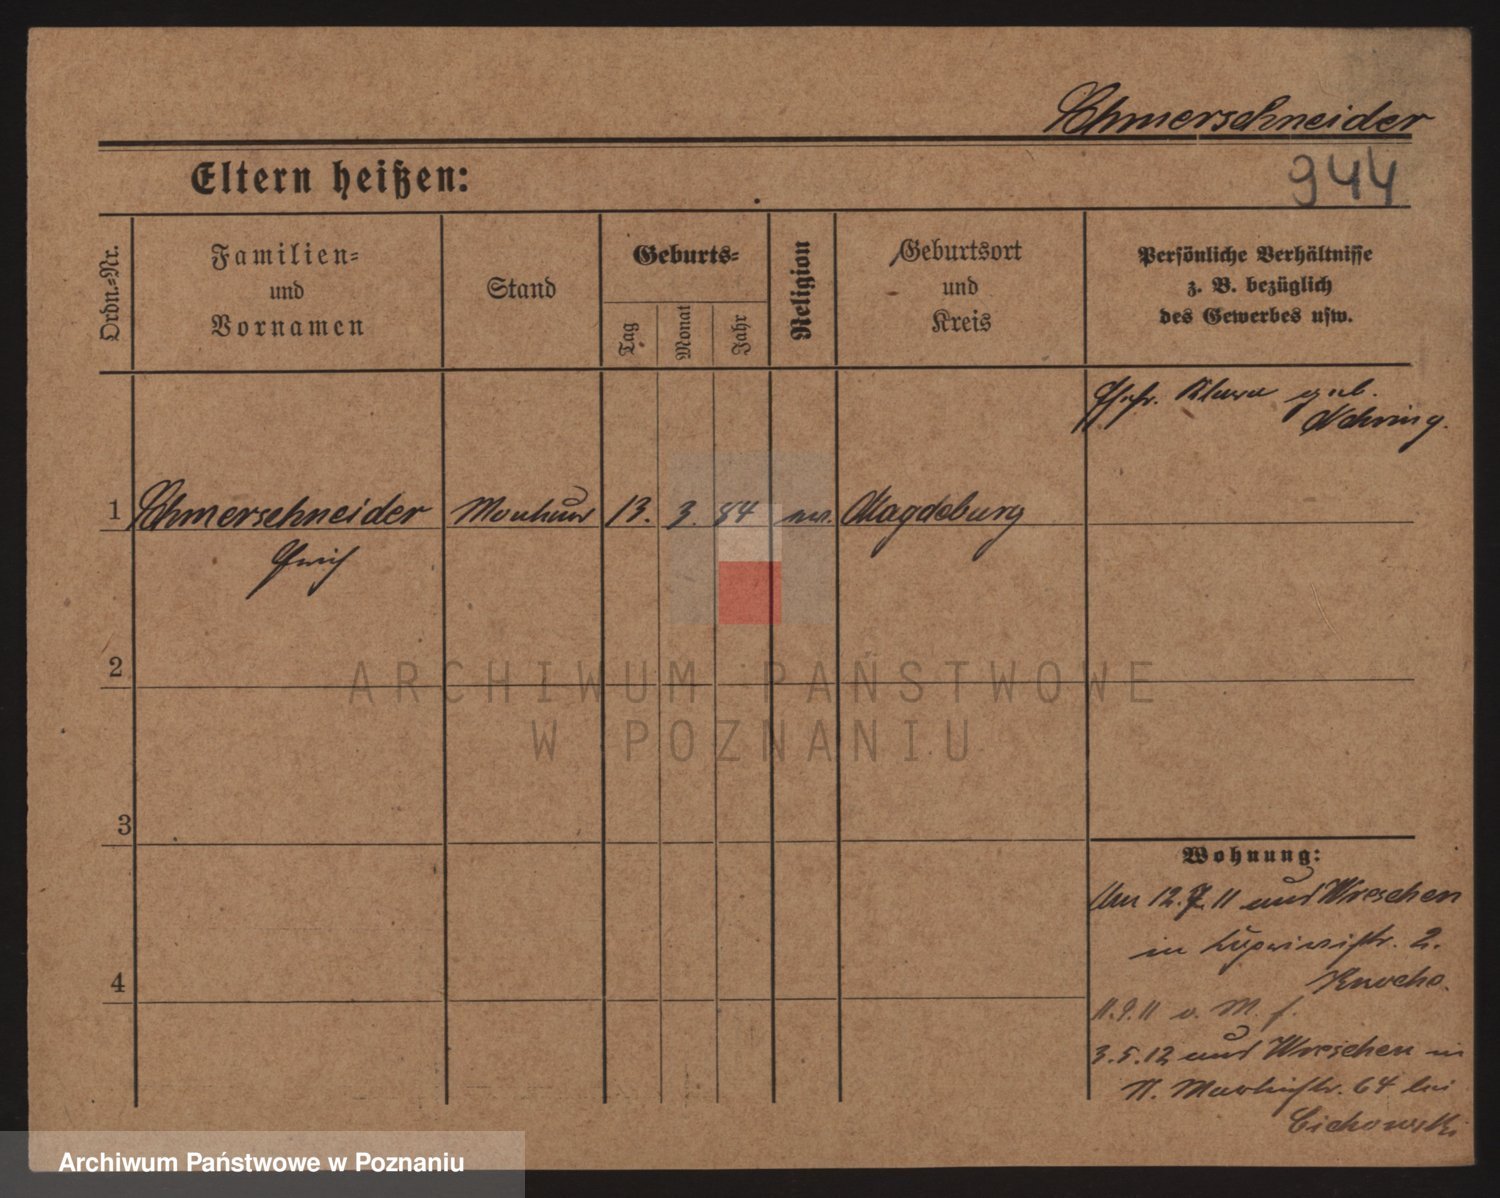 Ohmerschneider
Eltern heißen:
944
Ordn.-Nr.
Familien-
und
Vornamen
Stand
Geburts-
Tag
Monat
Jahr
Religion
Geburtsort
und
Kreis
Persönliche Verhältnisse
z. B. bezüglich
des Gewerbes usw.
Ehefr. Klara geb.
Nehring.
1 Ohmerschneider Monteur 13. 3. 84 ev. Magdeburg
Erich
2
3
4
ARCHIWUM PAŃSTWOWE
W POZNANIU
Wohnung:
Am 12.7.11 aus Wreschen
in 2.
11.9.11 v. M. f.
3.5.12 aus Wreschen in
N. Marktstr. 64 bei
Cichowski
Archiwum Państwowe w Poznaniu